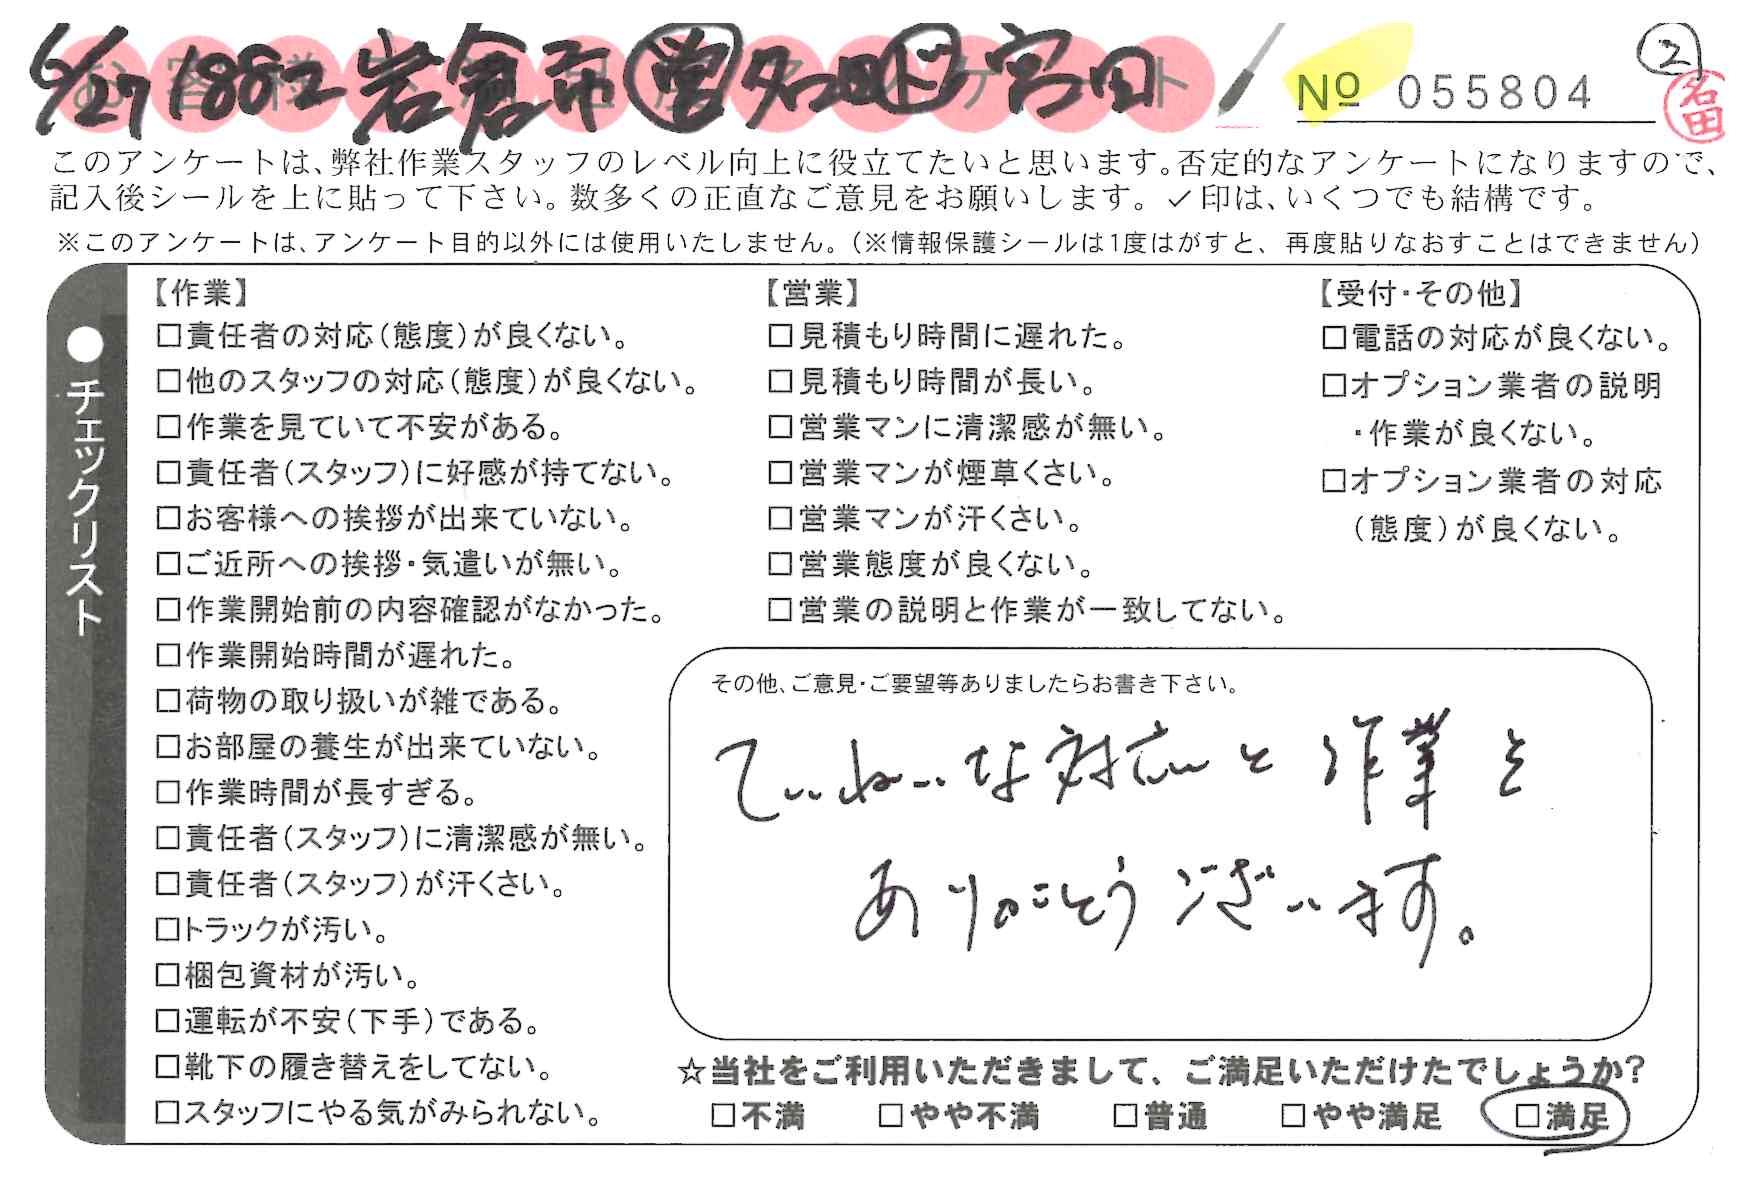 6/27 1882 岩倉市 営 名田 ド 宮田
② 名田
Nº 055804
このアンケートは、弊社作業スタッフのレベル向上に役立てたいと思います。否定的なアンケートになりますので、
記入後シールを上に貼って下さい。数多くの正直なご意見をお願いします。✓印は、いくつでも結構です。
※このアンケートは、アンケート目的以外には使用いたしません。（※情報保護シールは1度はがすと、再度貼りなおすことはできません）
●チェックリスト
【作業】
□責任者の対応（態度）が良くない。
□他のスタッフの対応（態度）が良くない。
□作業を見ていて不安がある。
□責任者（スタッフ）に好感が持てない。
□お客様への挨拶が出来ていない。
□ご近所への挨拶・気遣いが無い。
□作業開始前の内容確認がなかった。
□作業開始時間が遅れた。
□荷物の取り扱いが雑である。
□お部屋の養生が出来ていない。
□作業時間が長すぎる。
□責任者（スタッフ）に清潔感が無い。
□責任者（スタッフ）が汗くさい。
□トラックが汚い。
□梱包資材が汚い。
□運転が不安（下手）である。
□靴下の履き替えをしてない。
□スタッフにやる気がみられない。
【営業】
□見積もり時間に遅れた。
□見積もり時間が長い。
□営業マンに清潔感が無い。
□営業マンが煙草くさい。
□営業マンが汗くさい。
□営業態度が良くない。
□営業の説明と作業が一致してない。
【受付・その他】
□電話の対応が良くない。
□オプション業者の説明
・作業が良くない。
□オプション業者の対応
（態度）が良くない。
その他、ご意見・ご要望等ありましたらお書き下さい。
ていねいな対応と作業を
ありがとうございます。
☆当社をご利用いただきまして、ご満足いただけたでしょうか?
□不満 □やや不満 □普通 □やや満足 □満足